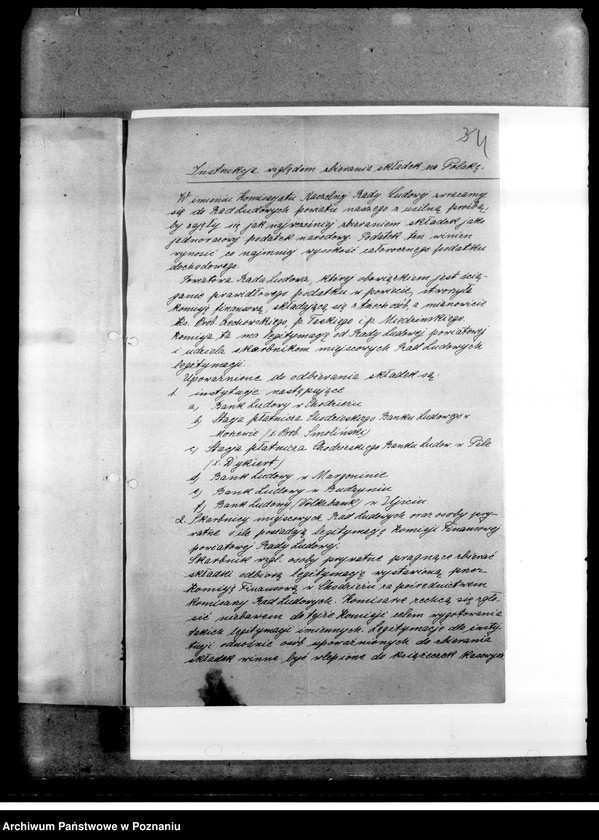 34
Instrukcja względem zbierania składek na Polskę.
W imieniu Komisaryatu Naczelnej Rady Ludowej zwracamy
się do Rad Ludowych powiatu naszego z usilną prośbą,
by zajęły się jak najwcześniej zbieraniem składek jako
jednorazowy podatek narodowy. Podatek ten winien
wynosić co najmniej wysokość całorocznego podatku
dochodowego.
Powiatowa Rada Ludowa, której obowiązkiem jest ścią-
ganie prawidłowego podatku w powiecie, utworzyła
Komisję finansową, składającą się z trzech osób a mianowicie
ks. Prob. Lechowskiego, p. Taskiego i p. Miedzińskiego.
Komisja ta ma legitymację od Rady Ludowej powiatowej
i udziela skarbnikom miejscowych Rad Ludowych
legitymacji.
Upoważnione do odbierania składek są:
1. instytucje następujące
a) Bank Ludowy w Chodzieżu
b) Stacja płatnicza Chodzieskiego Banku Ludowego w
(X. Prob. Smoliński)
c) Stacja płatnicza Chodzieskiego Banku Ludow. w Pile
(X. Dykiert)
d) Bank Ludowy w Margoninie
e) Bank Ludowy w Budzyniu
f) Bank Ludowy (Volksbank) w Ujściu
2. Skarbnicy miejscowych Rad Ludowych oraz osoby pry-
watne o ile posiadają legitymację Komisji Finansowej
powiatowej Rady Ludowej.
Skarbnik wzgl. osoby prywatne pragnące zbierać
składki odbiorą legitymację wystawioną przez
Komisję Finansową w Chodzieżu za pośrednictwem
Komisarzy Rad Ludowych. Komisarze zechcą się zgło-
sić niebawem do tejże Komisji celem wygotowania
takich legitymacji imiennych. Legitymacje dla insty-
tucji odnośnie osób upoważnionych do zbierania
składek winne być wlepione do książeczek kasowych
Archiwum Państwowe w Poznaniu